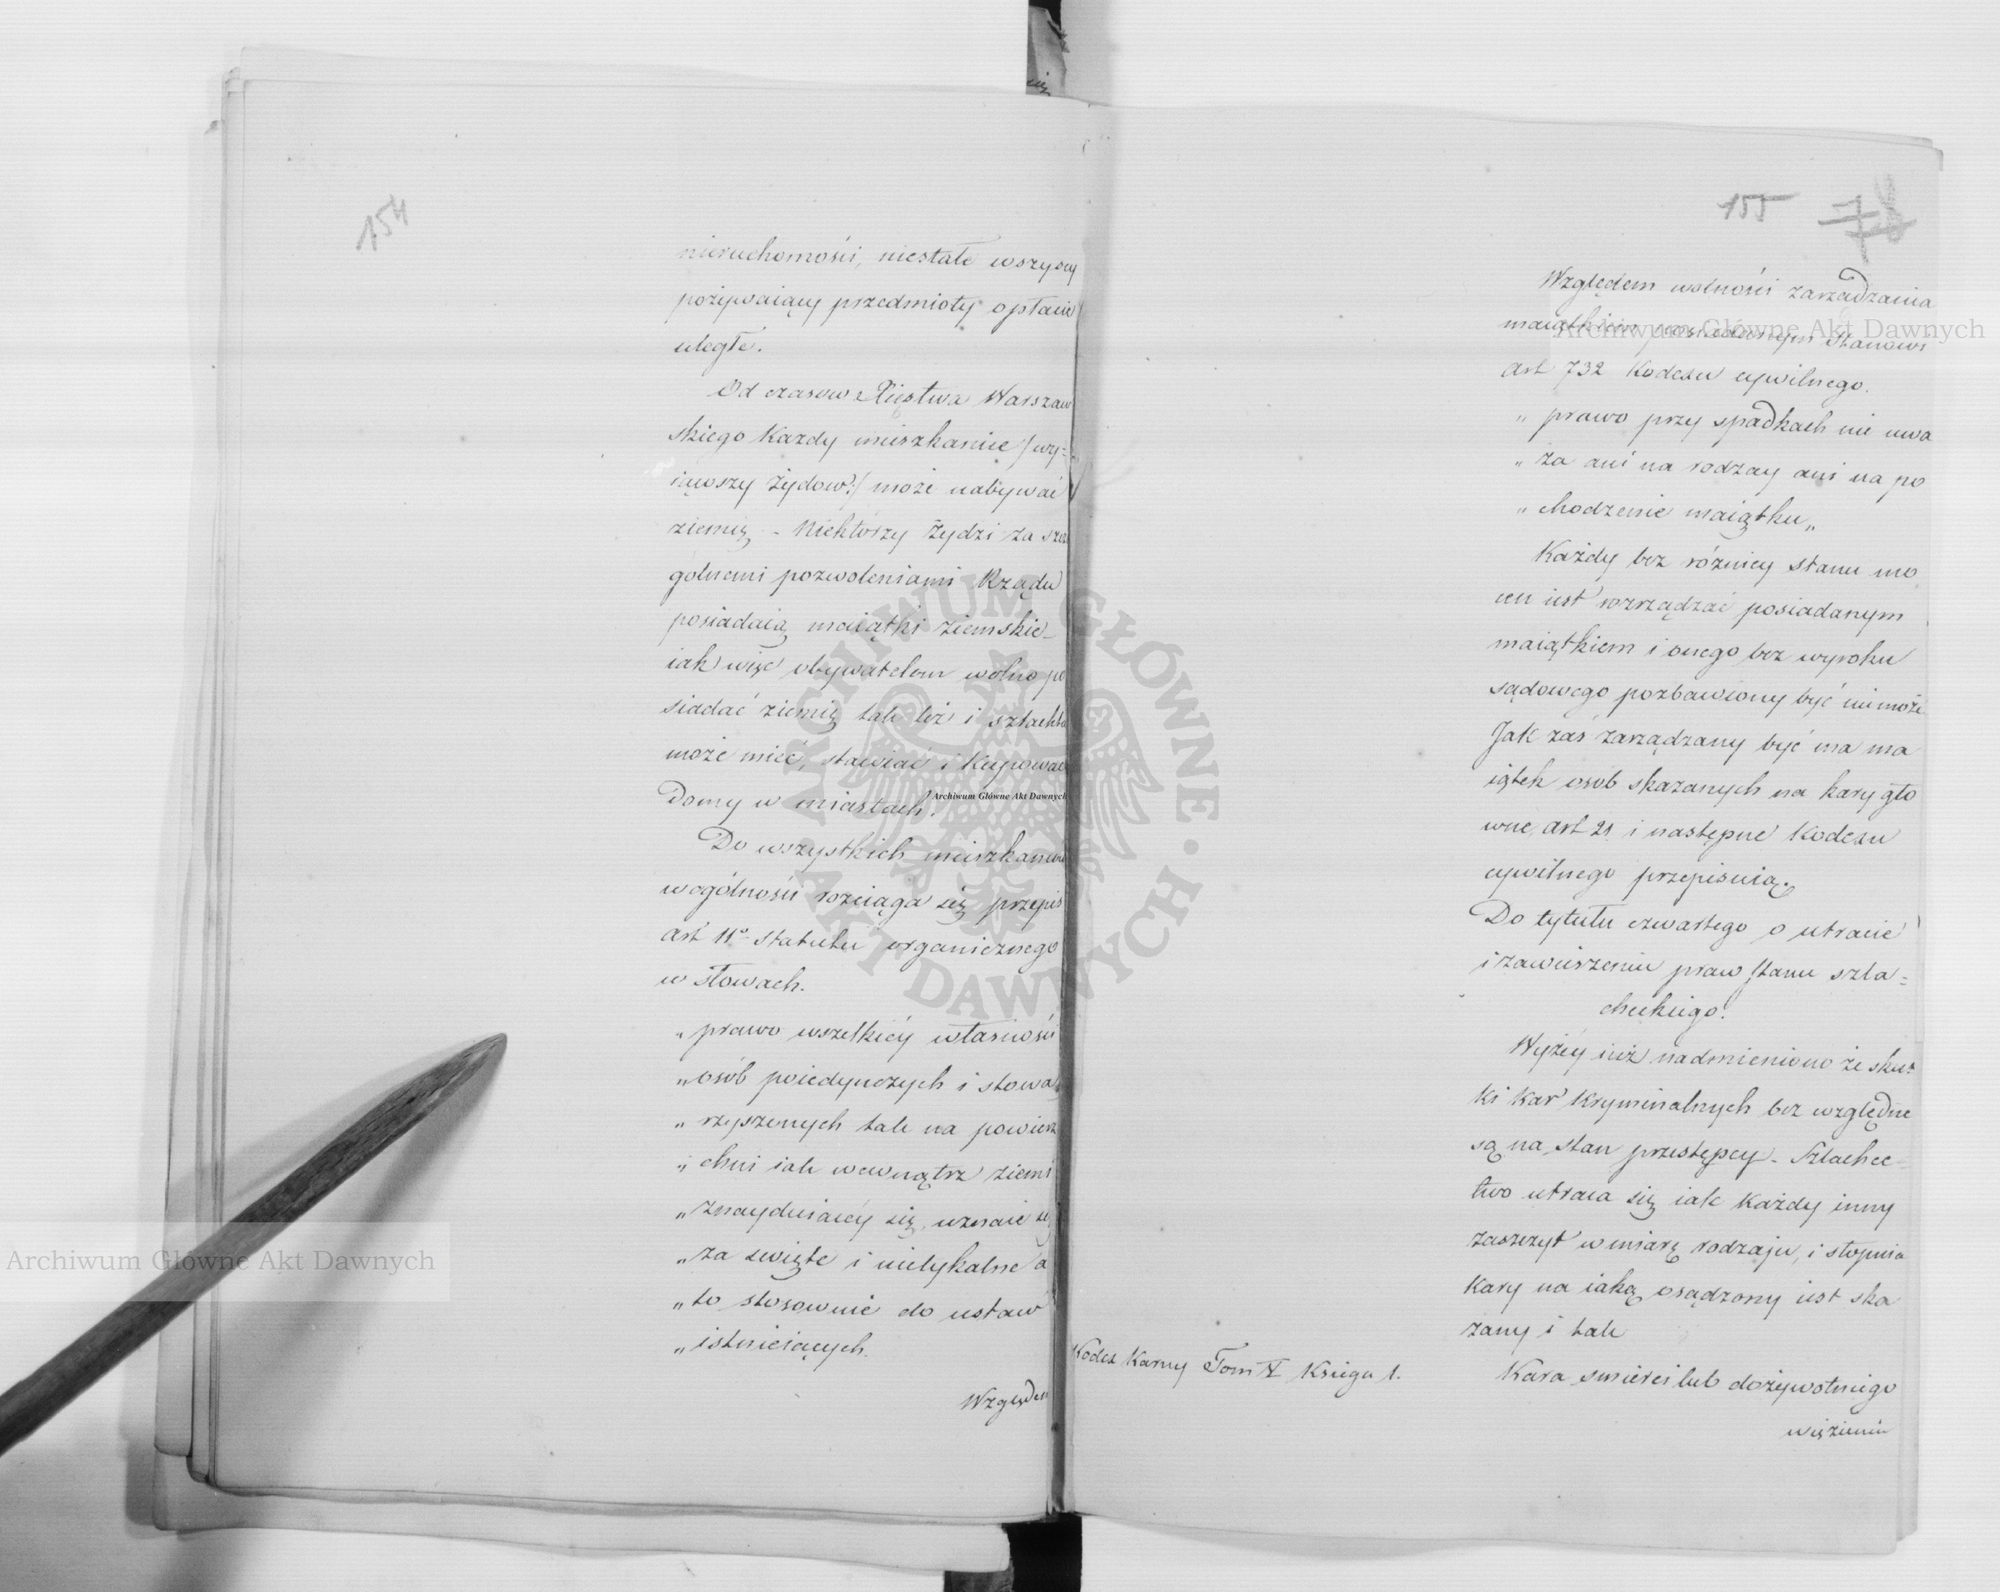 154
nieruchomości, niestałe wszyscy
pożywaiący przedmioty opłacie
uległe.
Od czasow Xięstwa Warszaw
skiego Kazdy mieszkaniec /:wy-
iąwszy Żydow:/ może nabywać
ziemię - Niektórzy Żydzi za szcze
gólnemi pozwoleniami Rządu
posiadaią maiątki ziemskie -
iak więc obywatelom wolno po
siadać ziemię tak też i szlachta
może mieć, stawiać i Kupować
Domy w miastach.
Do wszystkich mieszkańców
w ogólności rozciąga się przepis
art 11º Statutu organicznego
w słowach.
„prawo wszelkiéy własności
„osób poiedynczych i stowa
„rzyszonych tak na powierz
„chni iak wewnątrz ziemi
„znayduiącéy się, uznaie się
„za święte i nietykalne a
„to stosownie do ustaw
„istnieiących.
Względem
155 78
Względem wolności zarządzania
maiątkiem posiadanym Stanowi
art 732 Kodexu cywilnego.
„prawo przy spadkach nie uwa
„ża ani na rodzay ani na po
„chodzenie maiątku„
Każdy bez różnicy stanu mo
cen iest rozrządzać posiadanym
maiątkiem i onego bez wyroku
sądowego pozbawiony być nie może
Jak zaś zarządzany być ma ma
iątek osób skazanych na kary gło
wne, art 21 i następne Kodexu
cywilnego przepisuią.
Do tytułu czwartego o utracie
i zawieszeniu praw Stanu szla-
checkiego.
Wyżéy iuż nadmieniono że skut
ki Kar Kryminalnych bez względne
są na Stan przestępcy - Szlachec-
two utraca się iak Każdy inny
zaszczyt w miarę rodzaju, i stopnia
Kary na iaką osądzony iest ska
zany i tak
Kodex Karny Tom X Księga 1.
Kara śmierci lub dożywotniego
więzienia
Archiwum Główne Akt Dawnych
Archiwum Główne Akt Dawnych
Archiwum Główne Akt Dawnych
ARCHIWUM GŁÓWNE · AKT DAWNYCH ·